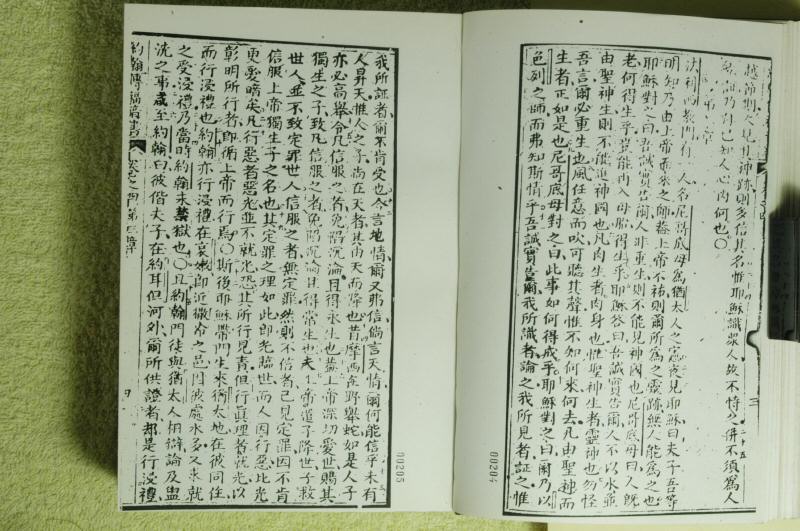 越節期
見其神跡則多信其名惟耶穌識眾人故不恃之併不須為人
乃自己知人心內何也〇
章
法利西教門有一人名尼哥底母為猶太人之宦夜見耶穌曰夫子吾等
明知乃由上帝而來之師蓋上帝不祐則爾所為之靈跡無人能為之也
耶穌對之曰吾誠實告爾人非重生則不能見神國也尼哥底母曰人既
老何得生乎豈能內入母胎得生乎耶穌答曰吾誠實告爾人不以水並
由聖神生則不能進神國也凡肉生者肉身也惟聖神生者靈神也勿怪
吾言爾必重生也風任意而吹可聽其聲惟不知何來何去凡由聖神而
生者正如是也尼哥底母對之曰此事如何得成乎耶穌對之曰爾乃以
色列之師而弗知斯情乎吾誠實告爾我所識者論之我所見者証之惟
00204
我所証者爾不肯受也今言地情爾又弗信倘言天情爾何能信乎未有
人昇天惟人之子尚在天者其由天而降也昔摩西在野舉蛇如是人子
亦必高舉令凡信服之者免陷沉淪且得永生也蓋上帝深切愛世賜其
獨生之子致凡信服之者免陷沉淪且得常生也夫上帝遣子降世子救
世人並不致定罪世人信服之者無定罪然則不信者己見定罪因不肯
信服上帝獨生子之名也其定罪之理如此即光臨世而人因行惡比光
更愛暗矣凡行惡者惡光並不就光恐其所行見責但行真理者就光以
彰明所行者即衛上帝而行焉〇斯後耶穌帶門生來猶太地在彼同住
而行浸禮也約翰亦行浸禮在哀嫩即近撒冷之邑因彼處水多又求就
之受浸禮乃當時約翰未摯獄也〇且約翰門徒與猶太人相辯論及盥
洗之事咸至約翰曰彼偕夫子在約耳但河外爾所供證者却是行浸禮
約翰傳福音書
第三章
00205